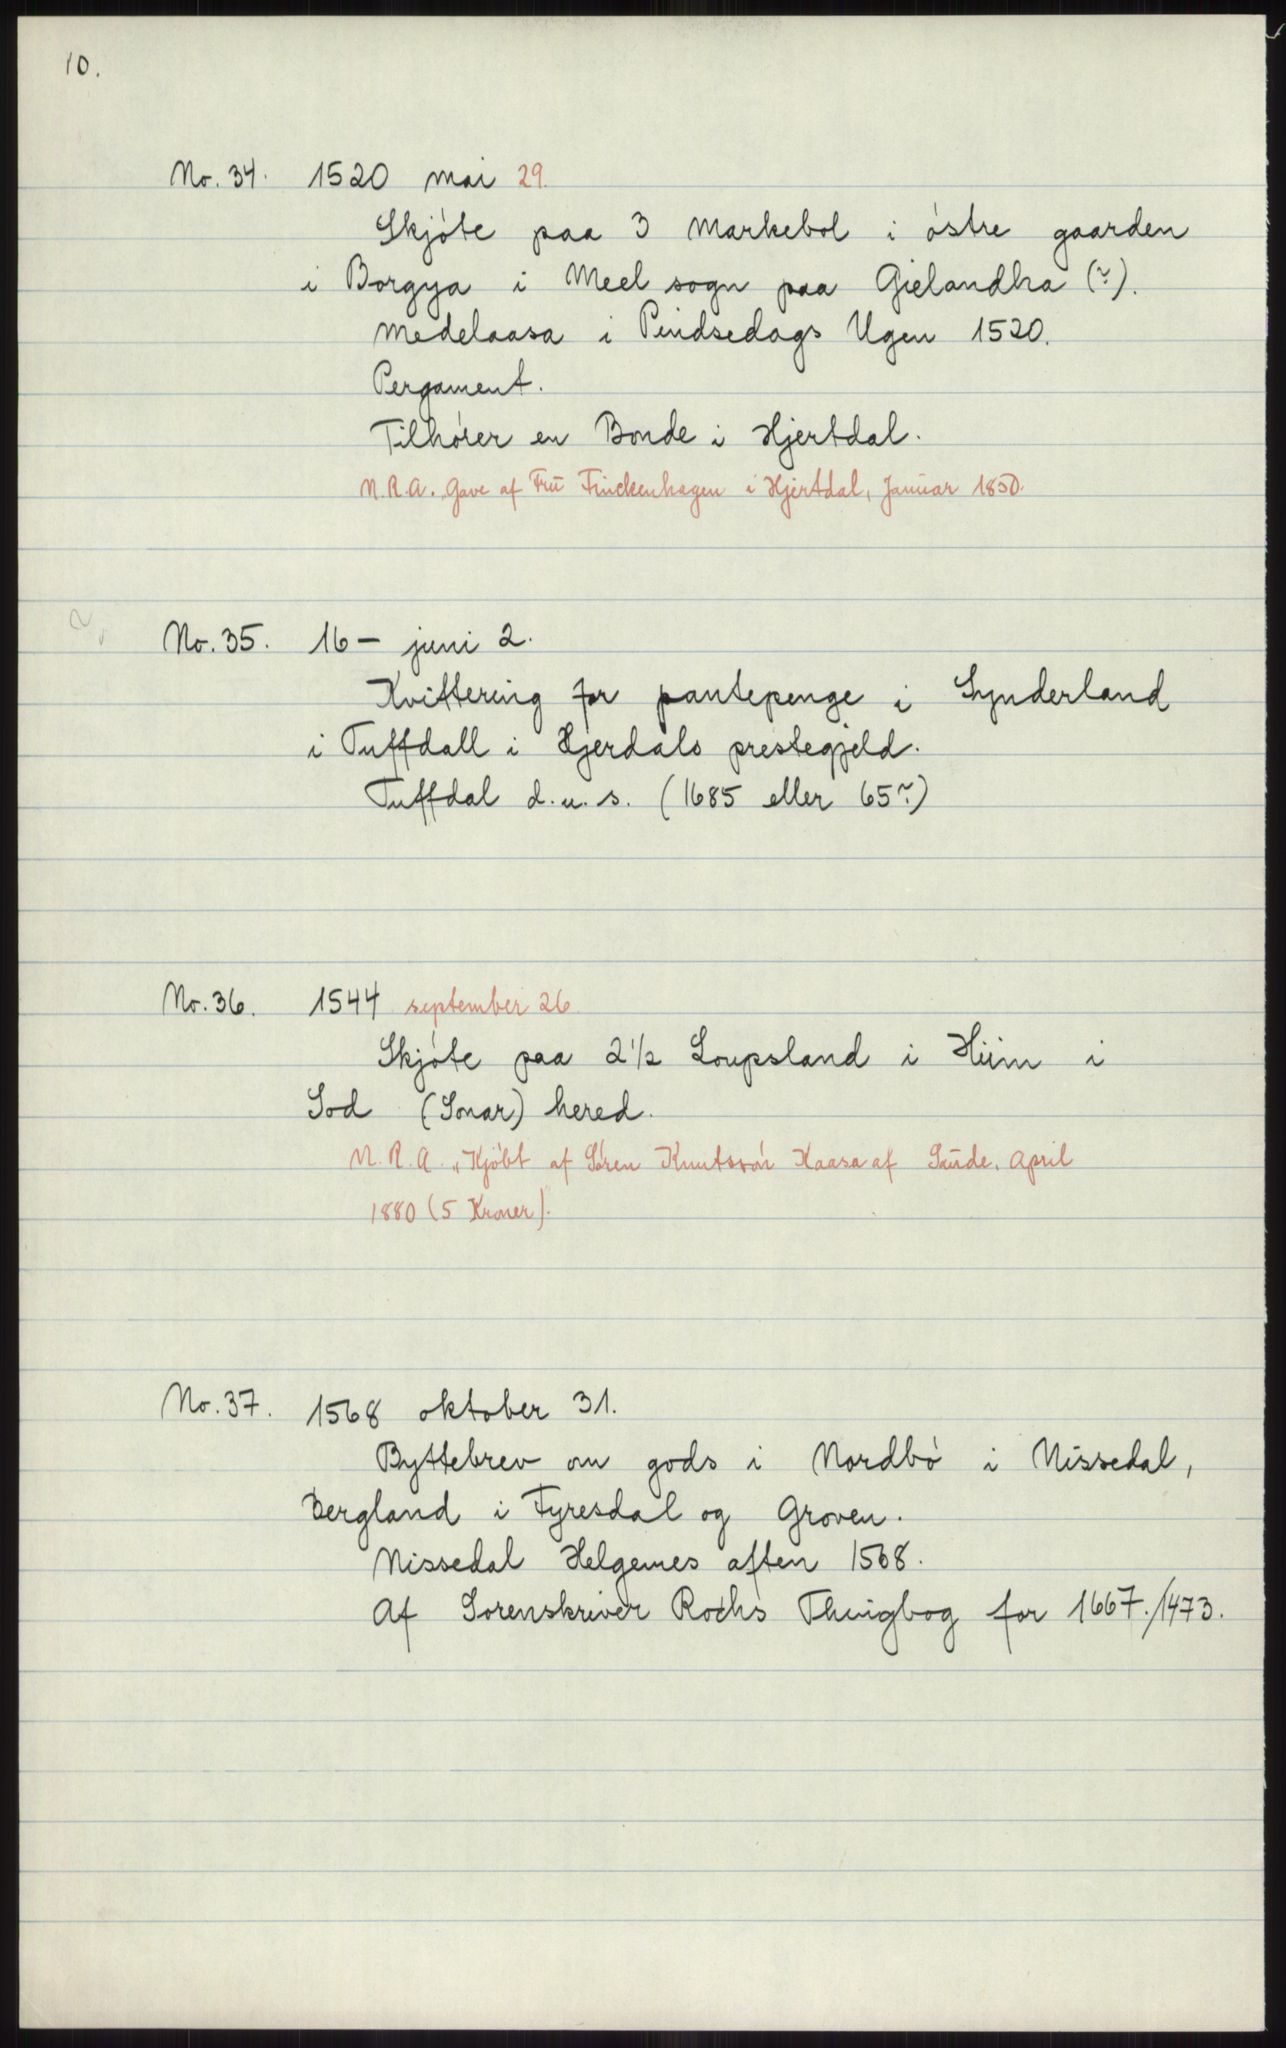 10.
No. 34. 1520 mai 29.
Skjóte paa 3 Markebol i óstre gaarden
i Borgya i Meel sogn paa Gielandha (?).
Medelaasa i Pindsedags Ugen 1520.
Pergament.
Tilhórer en Bonde i Hjertdal.
N.R.A. „Gave af Frú Finckenhagen i Hjertdal, Januar 1850.
No. 35. 16 — juni 2.
Kvittering for pantepenge i Synderland
i Tuffdall i Hjerdals prestegjeld.
Tuffdal d.u.s. (1685 eller 65?)
No. 36. 1544 september 26.
Skjóte paa 2 1/2 Loupsland i Hiim i
Sod (Sonar) hered.
N.R.A. „Kjóbt af Sóren Knutssón Kaasa af Saude, April
1880 (5 Kroner).
No. 37. 1568 oktober 31.
Byttebrev om gods i Nordbó i Nissedal,
Bergland i Fyresdal og Groven.
Nissedal Helgemes aften 1568.
Af Sorenskriver Rochs Thingbog for 1667./1473.